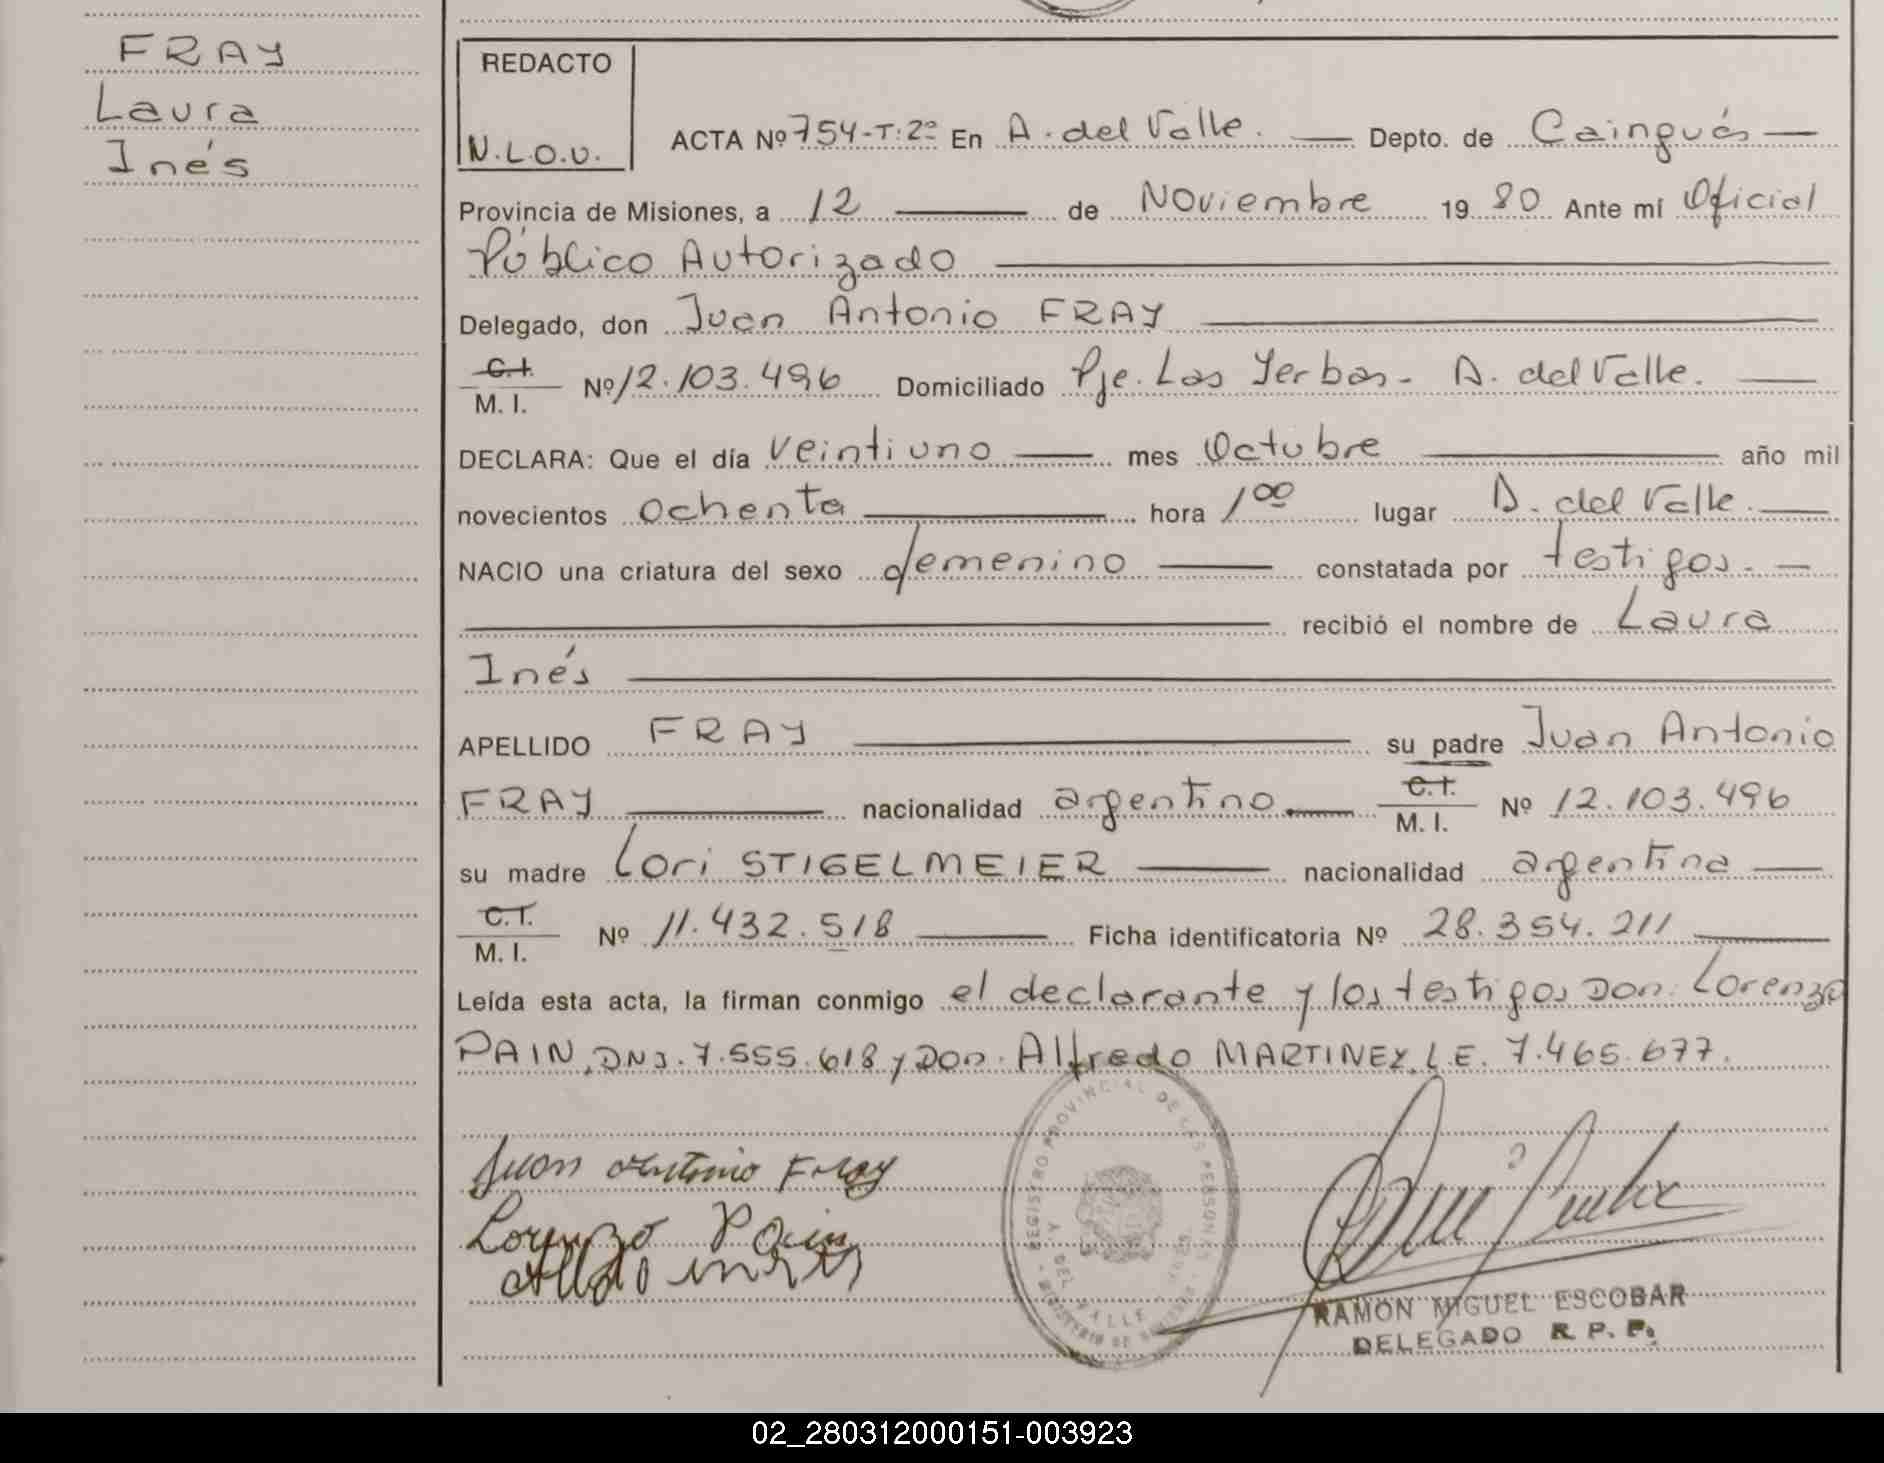 FRAY
Laura
Inés
REDACTO
N.L.O.U.
ACTA Nº 754-T:2º En A. del Valle. Depto. de Cainguás
Provincia de Misiones, a 12 de Noviembre 1980 Ante mí Oficial
Público Autorizado
Delegado, don Juan Antonio FRAY
C.I.
M. I. Nº 12.103.496 Domiciliado Pje. Las Yerbas - A. del Valle.
DECLARA: Que el día veintiuno mes Octubre año mil
novecientos ochenta hora 1⁰⁰ lugar A. del Valle.
NACIO una criatura del sexo femenino constatada por testigos.
recibió el nombre de Laura
Inés
APELLIDO FRAY su padre Juan Antonio
FRAY nacionalidad argentino. C.I. M. I. Nº 12.103.496
su madre Lori STIGELMEIER nacionalidad argentina
C.I.
M. I. Nº 11.432.518 Ficha identificatoria Nº 28.354.211
Leída esta acta, la firman conmigo el declarante y los testigos Don: Lorenzo
PAIN, DNI. 7.555.618 y Don. Alfredo MARTINEZ, L.E. 7.465.677.
Juan Antonio Fray
Lorenzo Pain
REGISTRO PROVINCIAL DE LAS PERSONAS
DEL VALLE
RAMON MIGUEL ESCOBAR
DELEGADO R. P. P.
02_280312000151-003923